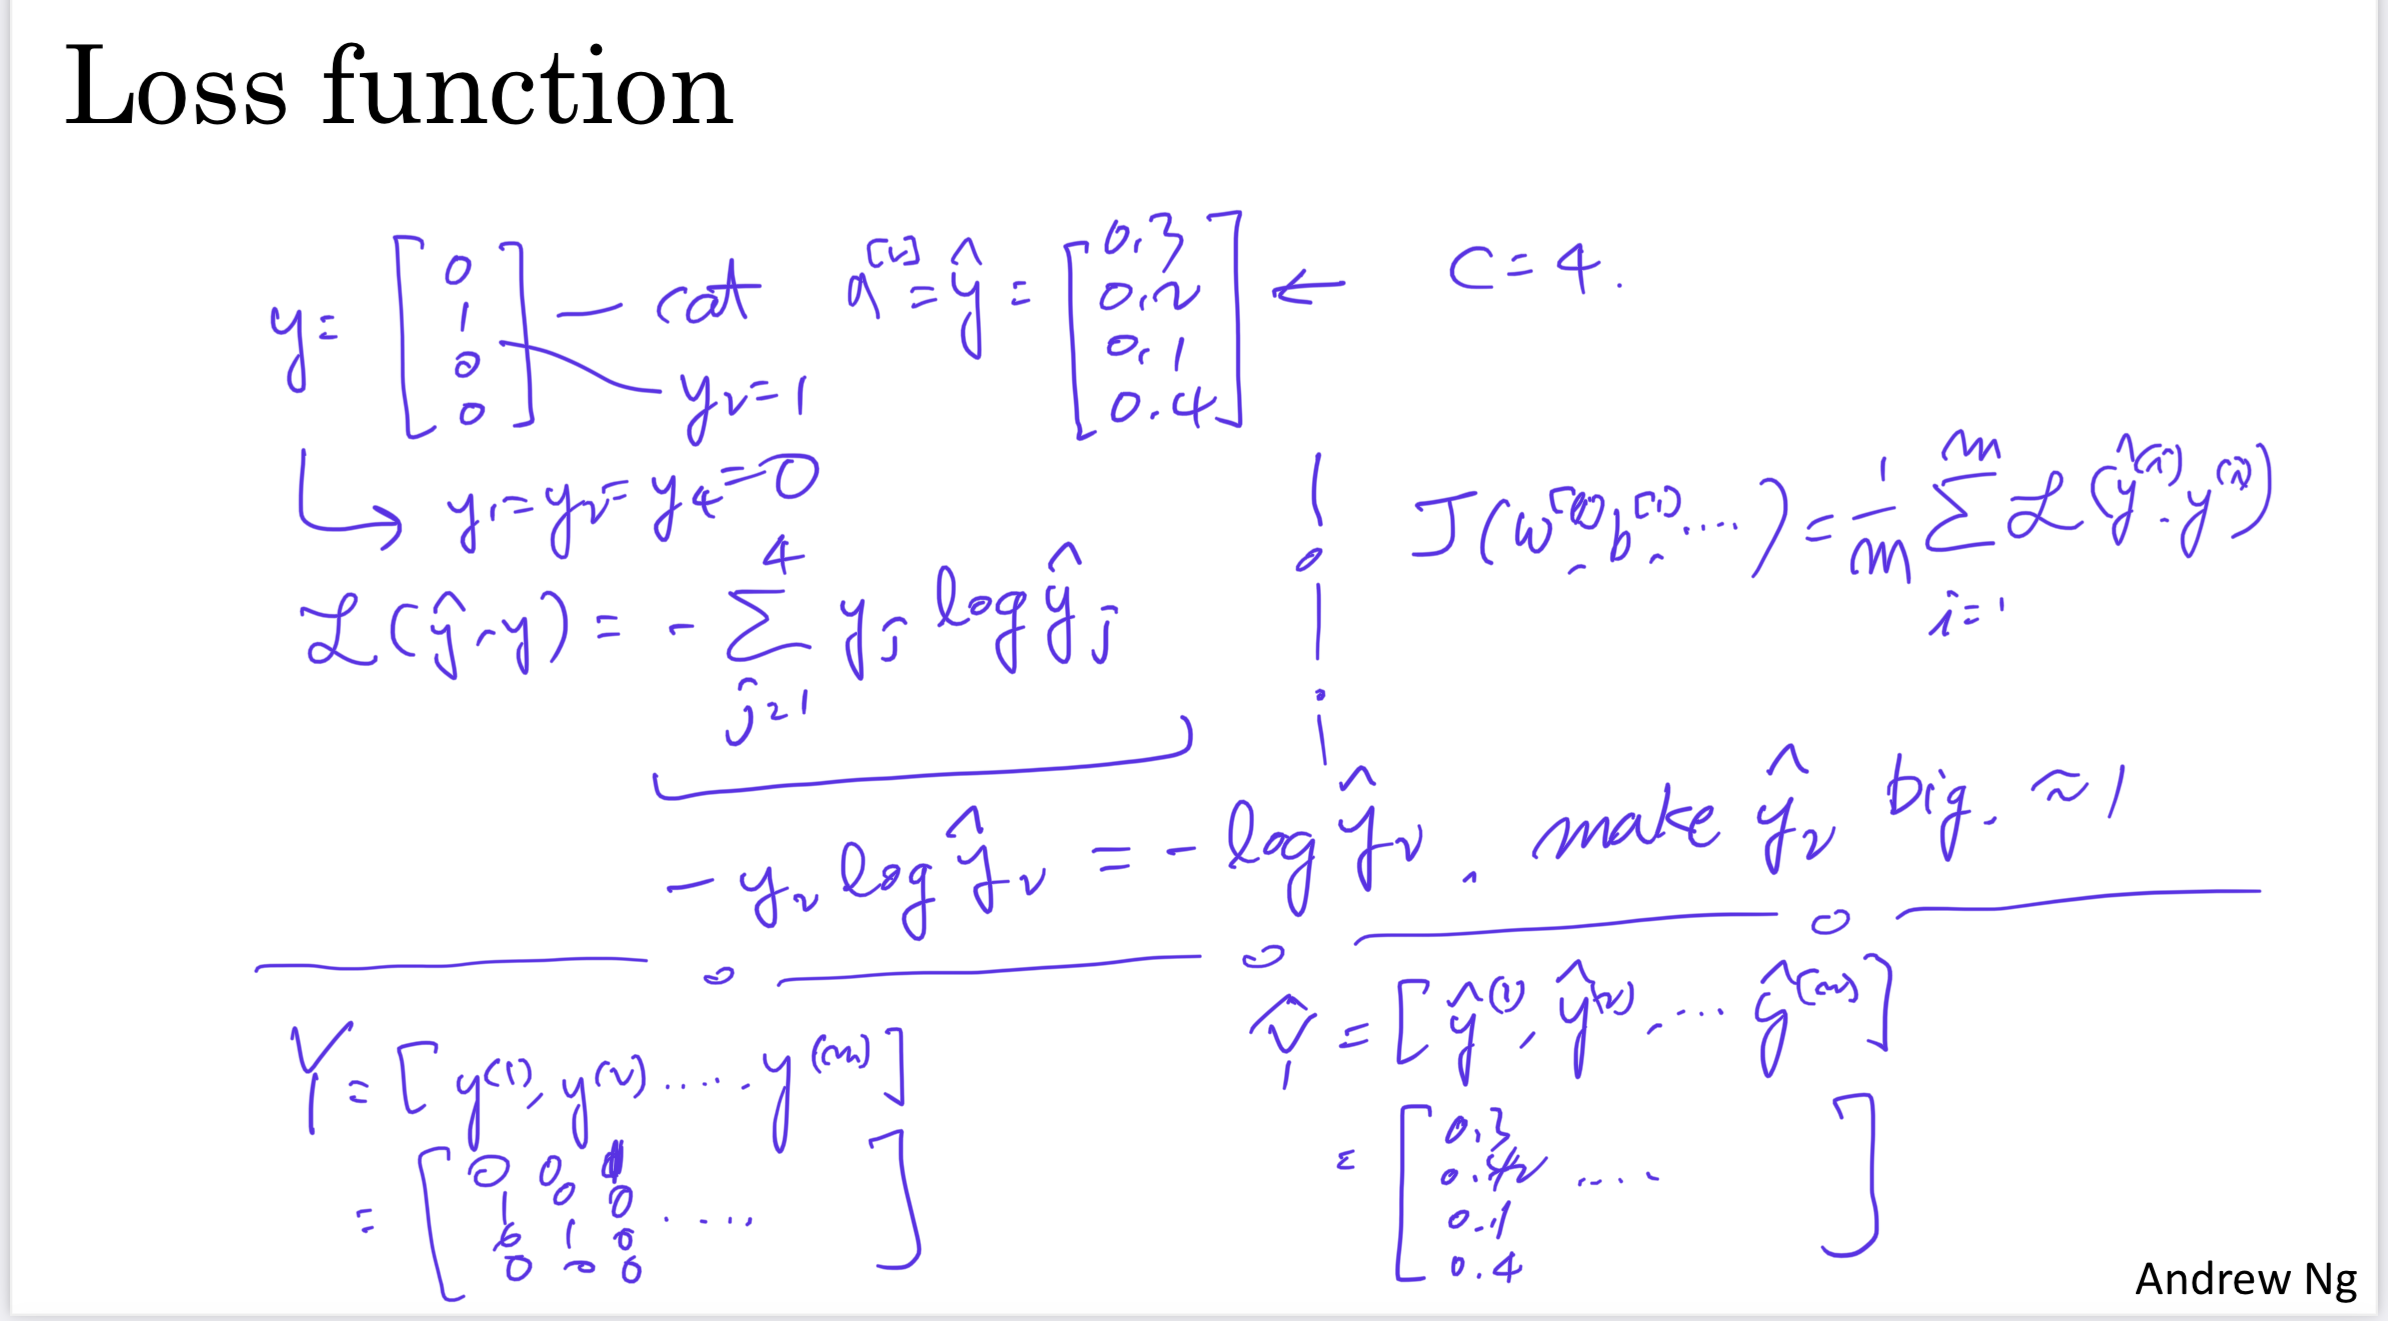 Loss function
y = [0 1 0 0] — cat
y₂ = 1
a^[L] = ŷ = [0.3 0.2 0.1 0.4] ←
C = 4.
↳ y₁ = y₂ = y₄ = 0
ℒ(ŷ, y) = - ∑_{j=1}^{4} y_j log ŷ_j
J(w^[1], b^[1], ....) = 1/m ∑_{i=1}^{m} ℒ(ŷ^(i), y^(i))
- y₂ log ŷ₂ = - log ŷ₂. make ŷ₂ big. ≈ 1
Y = [y^(1), y^(2) ..... y^(m)]
= [0 0 1 .... ]
[1 0 0]
[0 1 0]
[0 0 0]
Ŷ = [ŷ^(1), ŷ^(2), ... ŷ^(m)]
= [0.3 .... ]
[0.2]
[0.1]
[0.4]
Andrew Ng